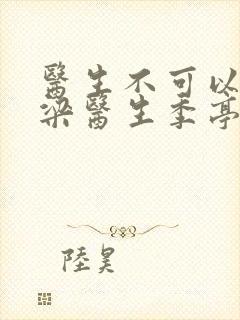 醫生不可以
梁醫生季亭
陸昊